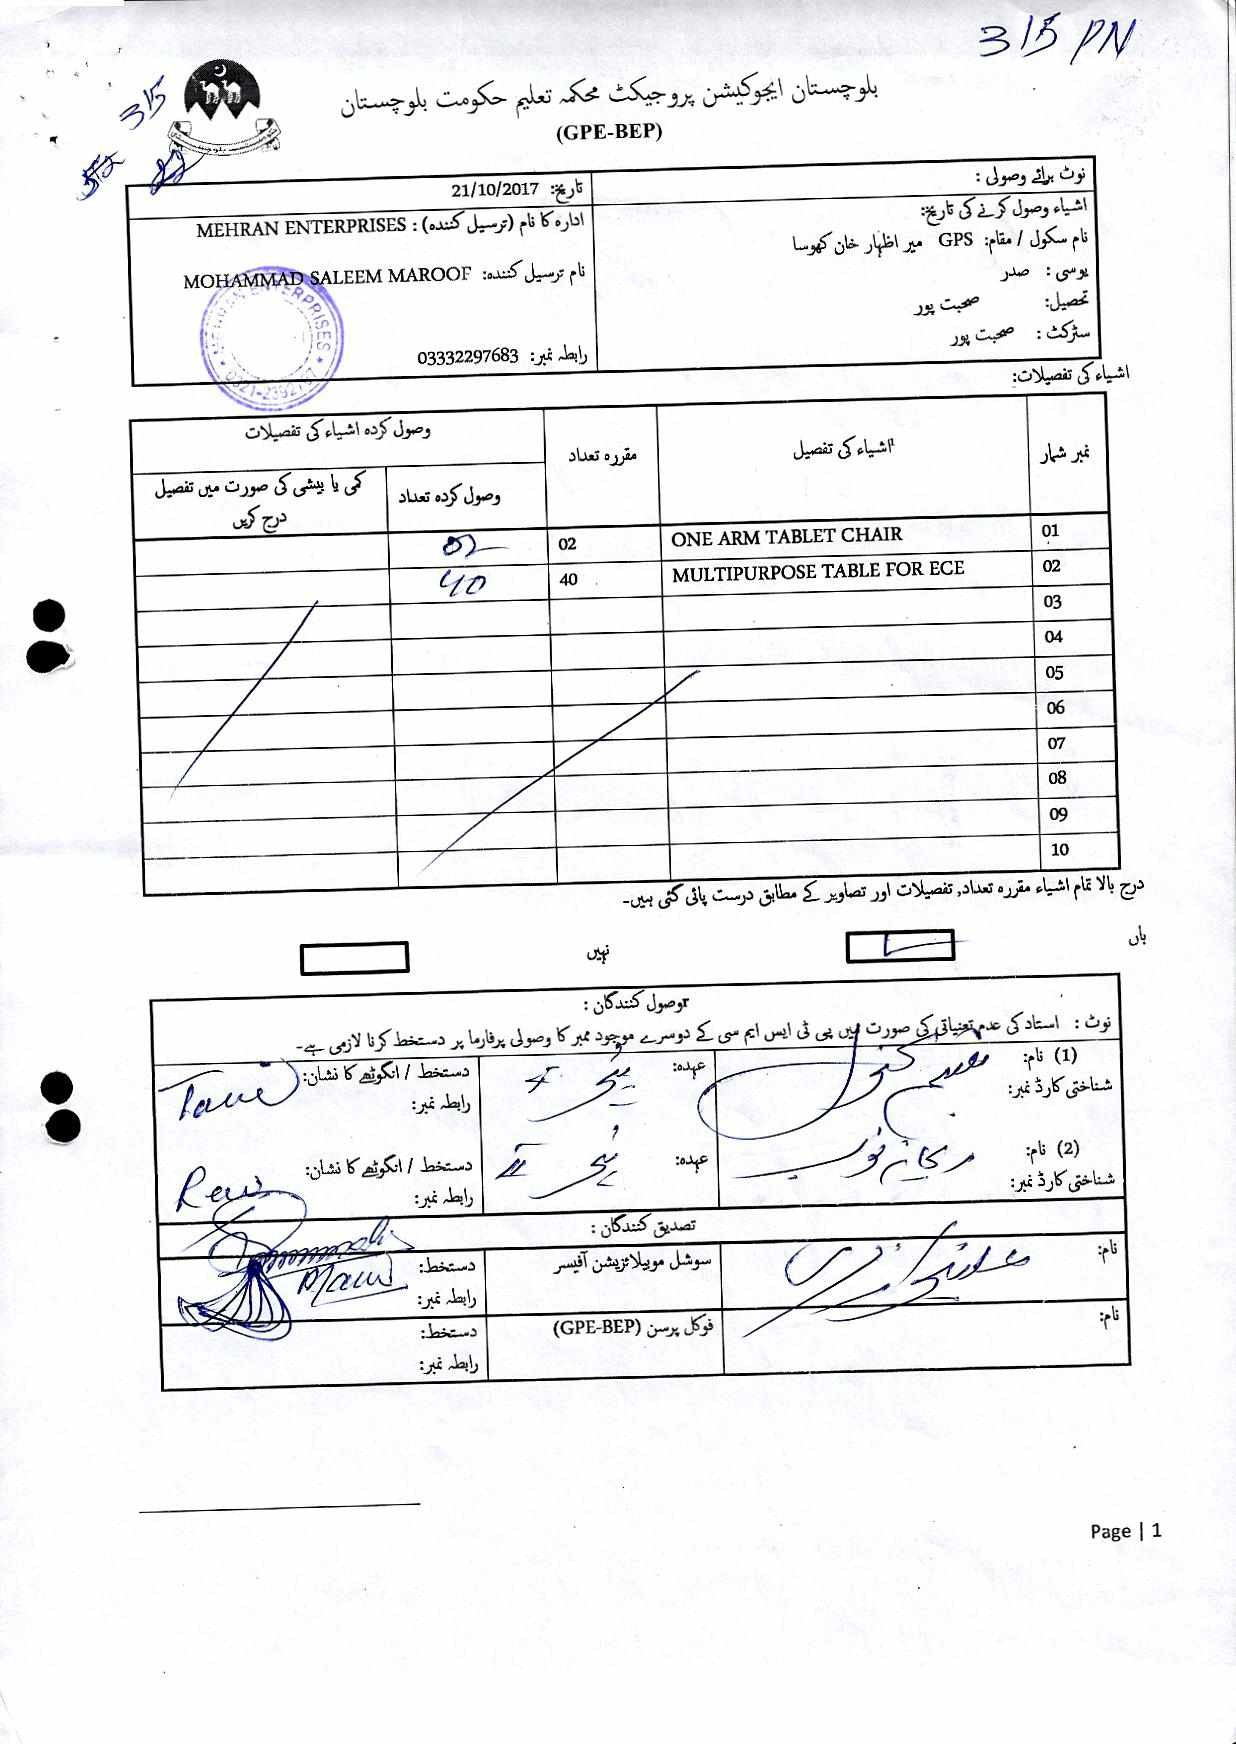 315 PN
315
بلوچستان ایجوکیشن پروجیکٹ محکمہ تعلیم حکومت بلوچستان
(GPE-BEP)
نوٹ برائے وصولی :
تاریخ: 21/10/2017
اشیاء وصول کرنے کی تاریخ:
ادارہ کا نام (ترسیل کنندہ) : MEHRAN ENTERPRISES
نام سکول / مقام: GPS میر اظہار خان کھوسا
نام ترسیل کنندہ: MOHAMMAD SALEEM MAROOF
یوسی : صدر
تحصیل: صحبت پور
سٹرکٹ : صحبت پور
رابطہ نمبر: 03332297683
MEHRAN ENTERPRISES
اشیاء کی تفصیلات:
نمبر شمار اشیاء کی تفصیل مقررہ تعداد وصول کردہ اشیاء کی تفصیلات
وصول کردہ تعداد کمی یا بیشی کی صورت میں تفصیل درج کریں
01 ONE ARM TABLET CHAIR 02 02
02 MULTIPURPOSE TABLE FOR ECE 40 40
03
04
05
06
07
08
09
10
درج بالا تمام اشیاء مقررہ تعداد, تفصیلات اور تصاویر کے مطابق درست پائی گئی ہیں۔
ہاں نہیں
وصول کنندگان :
نوٹ : استاد کی عدم تعیناتی کی صورت میں پی ٹی ایس ایم سی کے دوسرے موجود ممبر کا وصولی پرفارما پر دستخط کرنا لازمی ہے۔
(1) نام: عہدہ: دستخط / انگوٹھے کا نشان:
شناختی کارڈ نمبر: رابطہ نمبر:
(2) نام: عہدہ: دستخط / انگوٹھے کا نشان:
شناختی کارڈ نمبر: رابطہ نمبر:
تصدیق کنندگان :
نام: سوشل موبیلائزیشن آفیسر دستخط:
رابطہ نمبر:
نام: فوکل پرسن (GPE-BEP) دستخط:
رابطہ نمبر:
Page | 1